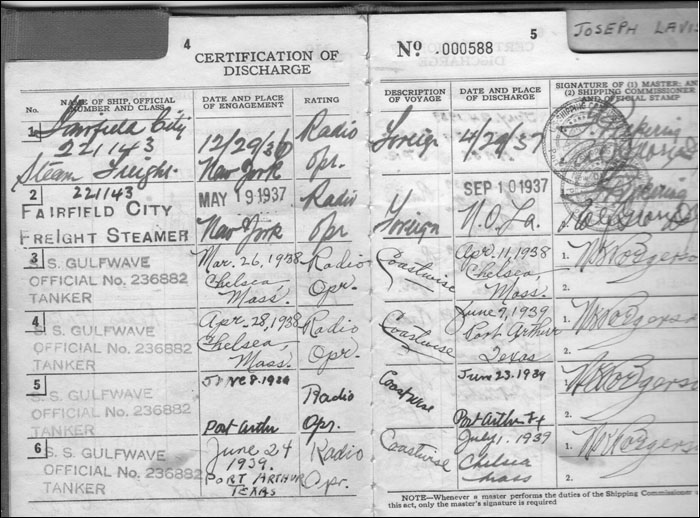 4
CERTIFICATION OF
DISCHARGE
No.
NAME OF SHIP, OFFICIAL
NUMBER AND CLASS
DATE AND PLACE
OF ENGAGEMENT
RATING
1
Fairfield City
221143
Steam Freight
12/29/36
New York
Radio
Opr.
2
221143
FAIRFIELD CITY
FREIGHT STEAMER
MAY 19 1937
New York
Radio
Opr
3
S.S. GULFWAVE
OFFICIAL No. 236882
TANKER
Mar. 26, 1938
Chelsea,
Mass.
Radio
Opr.
4
S.S. GULFWAVE
OFFICIAL No. 236882
TANKER
Apr. 28, 1938
Chelsea,
Mass.
Radio
Opr.
5
S.S. GULFWAVE
OFFICIAL No. 236882
TANKER
JUNE 8 1939
Port Arthur
Radio
Opr.
6
S.S. GULFWAVE
OFFICIAL No. 236882
TANKER
June 24
1939.
PORT ARTHUR
TEXAS
Radio
Opr.
5
No. .000588
JOSEPH
DESCRIPTION
OF VOYAGE
DATE AND PLACE
OF DISCHARGE
SIGNATURE OF (1) MASTER; AN
(2) SHIPPING COMMISSIONER
AND OFFICIAL STAMP
Foreign
4/29/37
Foreign
SEP 10 1937
N.O. La.
Coastwise
Apr. 11, 1938
Chelsea,
Mass.
1.
2.
Coastwise
June 7, 1939
Port Arthur
Texas
1.
2.
Coastwise
June 23. 1939
Port Arthur Tx
2.
Coastwise
July 1. 1939
Chelsea
Mass
1.
2.
NOTE—Whenever a master performs the duties of the Shipping Commissioner
this act, only the master's signature is required